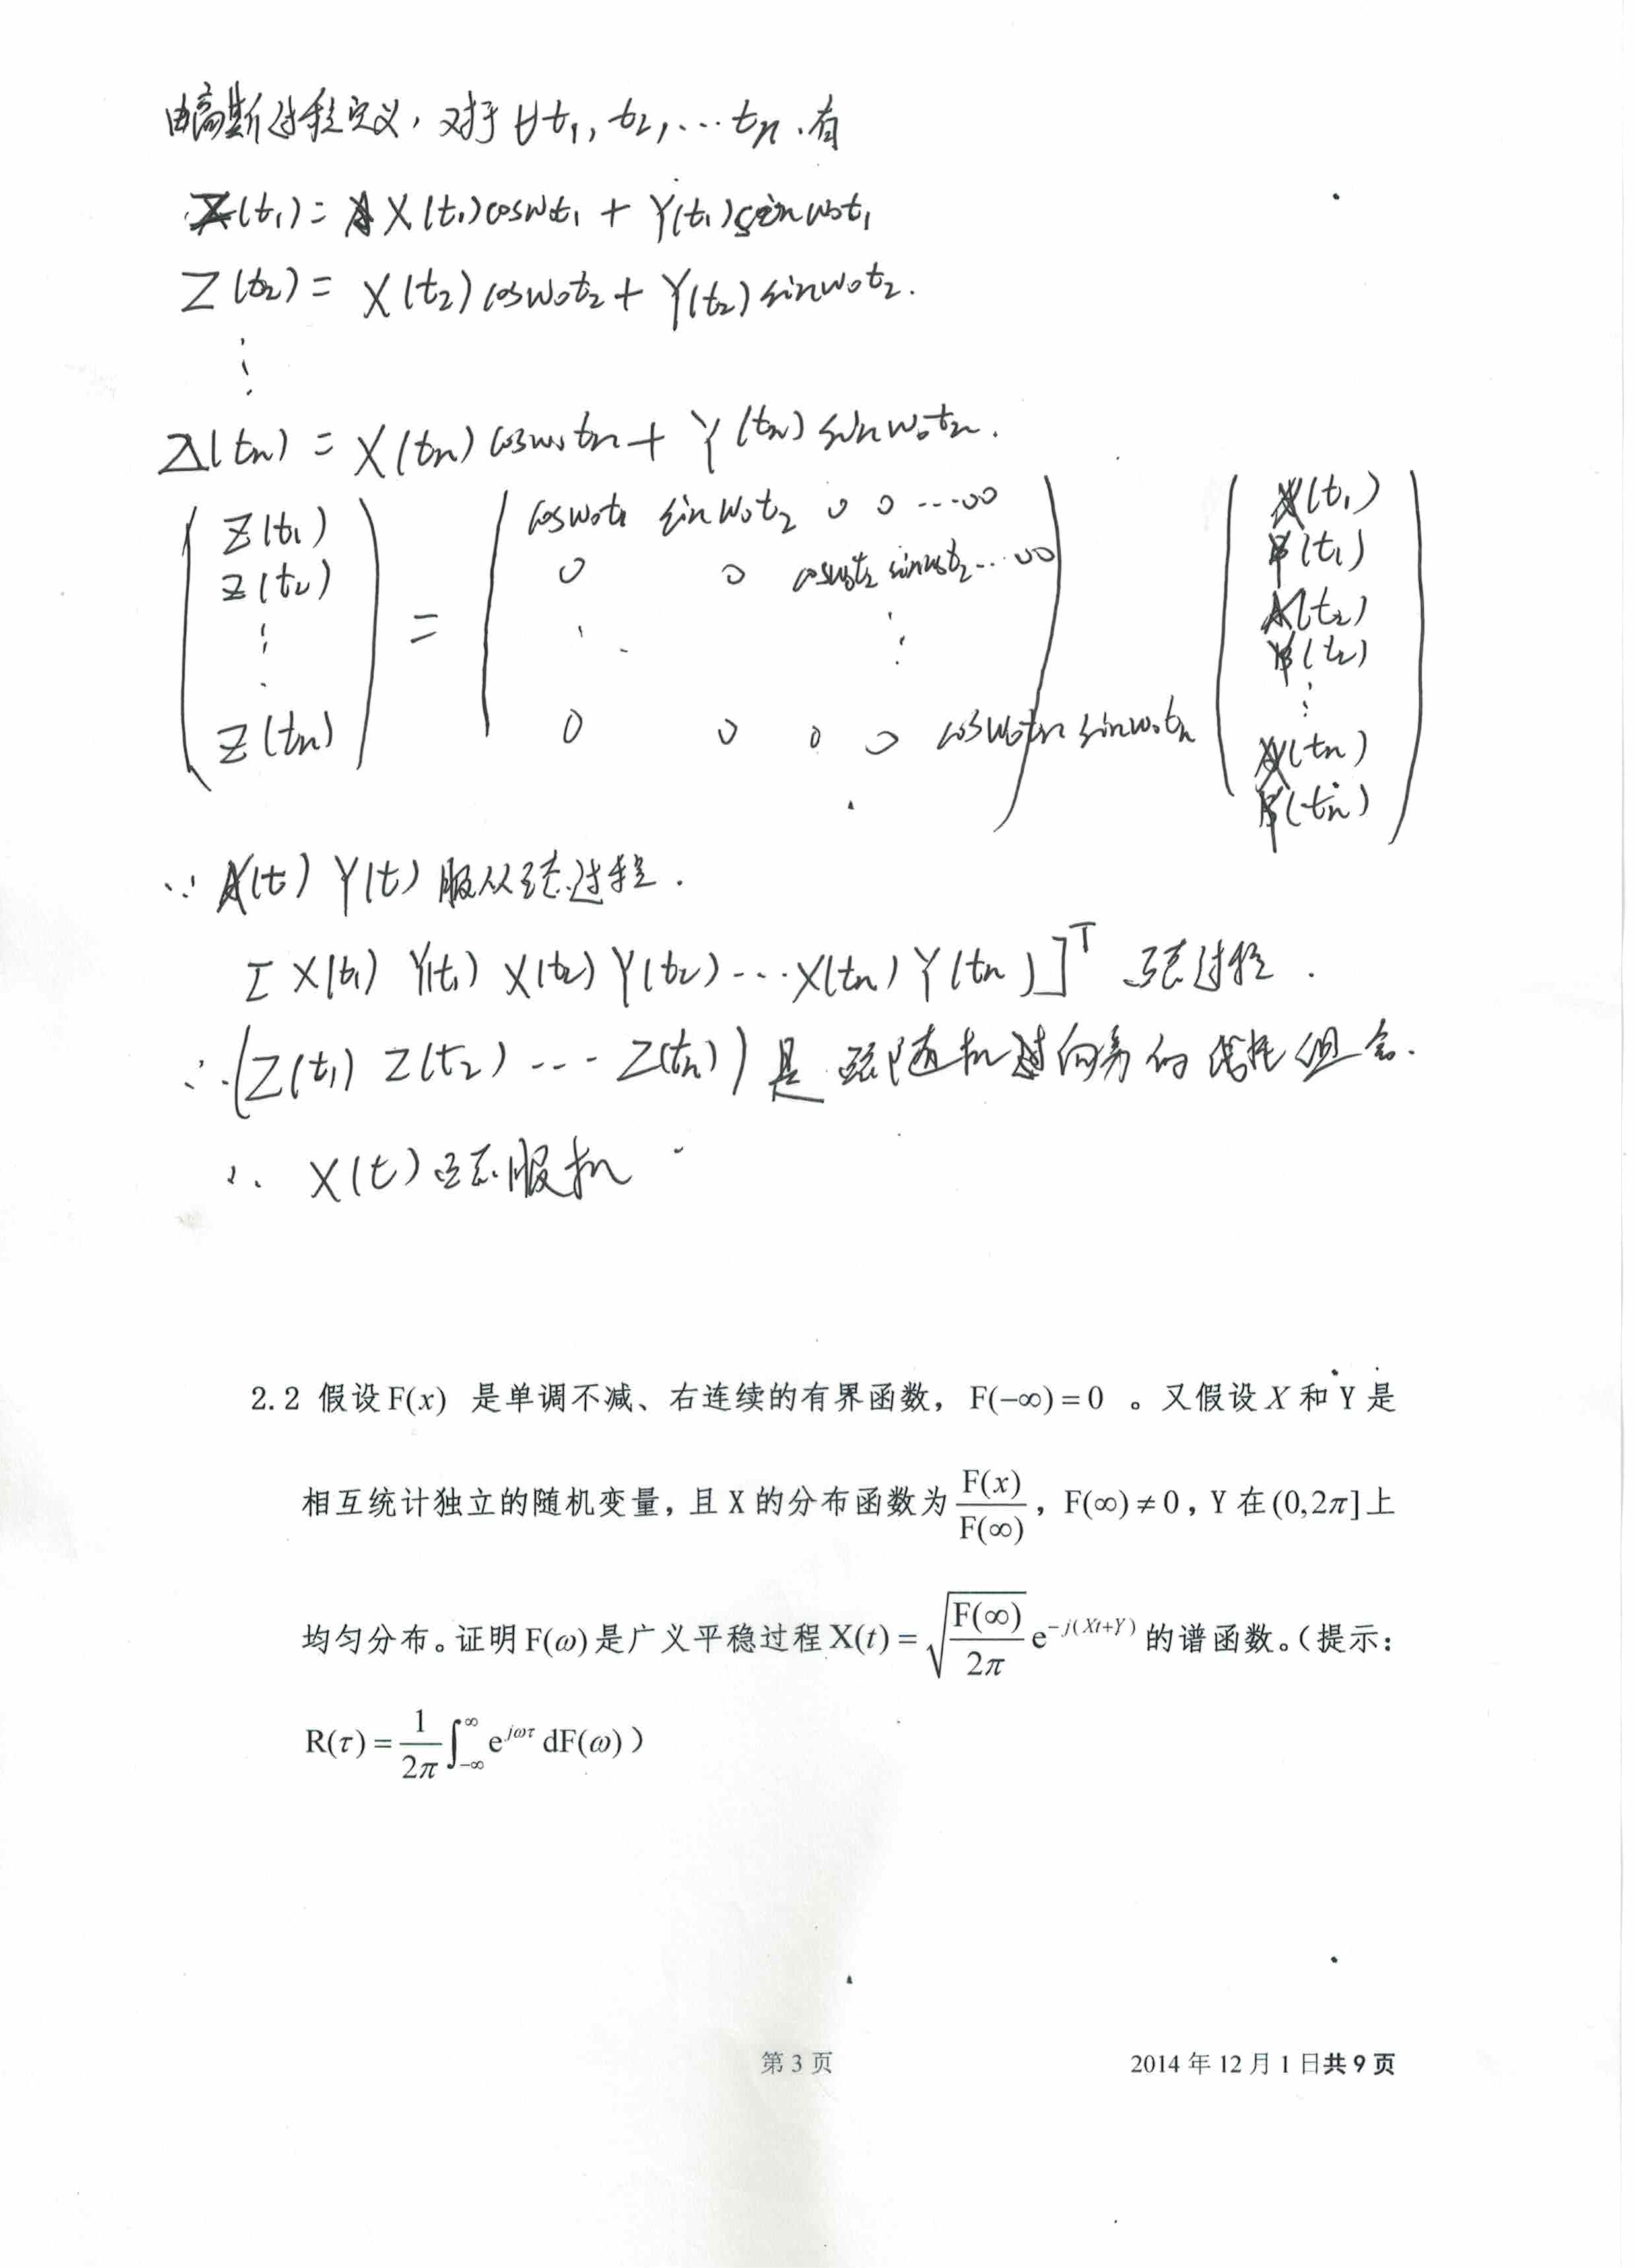 由高斯过程定义，对于∀t₁, t₂, … tₙ. 有
Z(t₁) = X(t₁)cosω₀t₁ + Y(t₁)sinω₀t₁
Z(t₂) = X(t₂)cosω₀t₂ + Y(t₂)sinω₀t₂.
⋮
Z(tₙ) = X(tₙ)cosω₀tₙ + Y(tₙ)sinω₀tₙ.
Z(t₁) cosω₀t₁ sinω₀t₂ 0 0 … 0 0 X(t₁)
Z(t₂) = 0 0 cosω₀t₂ sinω₀t₂ … 0 0 Y(t₁)
X(t₂)
⋮ ⋮ Y(t₂)
⋮
Z(tₙ) 0 0 0 0 cosω₀tₙ sinω₀tₙ X(tₙ)
Y(tₙ)
∵ X(t) Y(t) 服从正态过程.
[X(t₁) Y(t₁) X(t₂) Y(t₂) … X(tₙ) Y(tₙ)]ᵀ 正态过程.
∴ (Z(t₁) Z(t₂) … Z(tₙ)) 是 正态随机 向量的线性组合.
∴ X(t) 正态
2.2 假设 F(x) 是单调不减、右连续的有界函数，F(−∞) = 0 。又假设 X 和 Y 是
相互统计独立的随机变量，且 X 的分布函数为 F(x)/F(∞)，F(∞) ≠ 0，Y 在 (0,2π] 上
均匀分布。证明 F(ω) 是广义平稳过程 X(t) = √(F(∞)/2π) e^{−j(Xt+Y)} 的谱函数。（提示：
R(τ) = 1/2π ∫_{−∞}^{∞} e^{jωτ} dF(ω)）
第 3 页 2014 年 12 月 1 日共 9 页